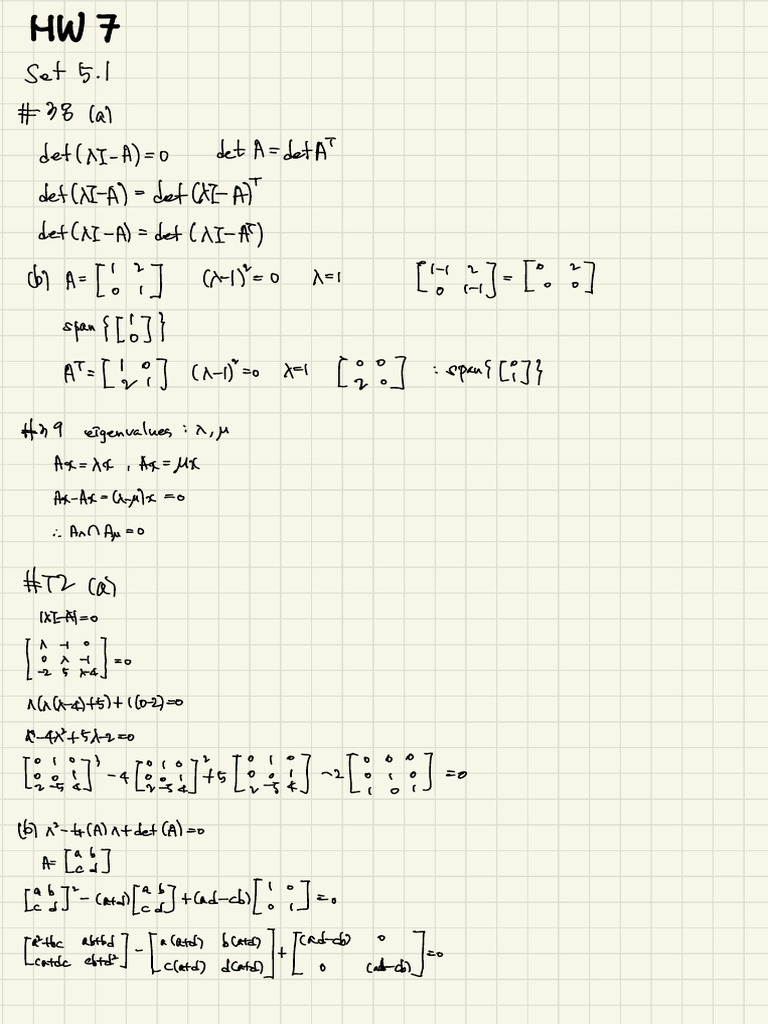 HW 7
Set 5.1
#38 (a)
det(λI-A)=0   det A = det Aᵀ
det(λI-A) = det(λI-A)ᵀ
det(λI-A) = det(λI-Aᵀ)
(b) A = [1 2; 0 1]   (λ-1)²=0   λ=1   [1-1 2; 0 1-1] = [0 2; 0 0]
span{[1; 0]}
Aᵀ = [1 0; 2 1]   (λ-1)²=0   λ=1   [0 0; 2 0]   : span{[0; 1]}
#39 eigenvalues : λ, μ
Ax=λx , Ax=μx
Ax-Ax=(λ-μ)x=0
∴ Aλ∩Aμ=0
#T2 (a)
|λI-A|=0
[λ -1 0; 0 λ -1; -2 5 λ-4]=0
λ(λ(λ-4)+5)+1(0-2)=0
λ³-4λ²+5λ-2=0
[0 1 0; 0 0 1; 2 -5 4]³ - 4[0 1 0; 0 0 1; 2 -5 4]² + 5[0 1 0; 0 0 1; 2 -5 4] - 2[0 0 0; 0 1 0; 1 0 1] = 0
(b) λ²-tr(A)λ+det(A)=0
A=[a b; c d]
[a b; c d]² - (a+d)[a b; c d] + (ad-cb)[1 0; 0 1] = 0
[a²+bc ab+bd; ca+dc cb+d²] - [a(a+d) b(a+d); c(a+d) d(a+d)] + [(ad-cb) 0; 0 (ad-cb)] = 0